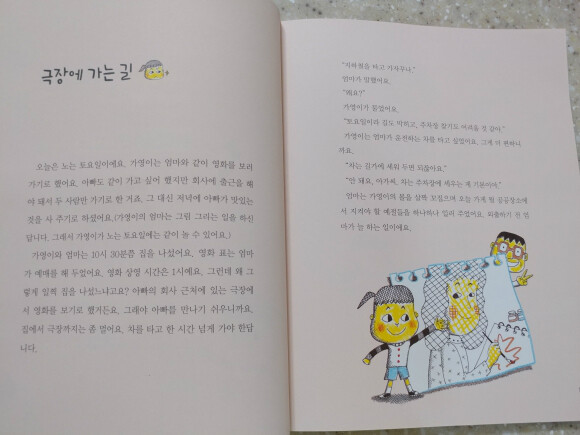 극장에 가는 길
오늘은 노는 토요일이에요. 가영이는 엄마와 같이 영화를 보러
가기로 했어요. 아빠도 같이 가고 싶어 했지만 회사에 출근을 해
야 돼서 두 사람만 가기로 한 거죠. 그 대신 저녁에 아빠가 맛있는
것을 사 주기로 하셨어요.(가영이의 엄마는 그림 그리는 일을 하신
답니다. 그래서 가영이가 노는 토요일에는 같이 놀 수 있어요.)
가영이와 엄마는 10시 30분쯤 집을 나섰어요. 영화 표는 엄마
가 예매를 해 두었어요. 영화 상영 시간은 1시예요. 그런데 왜 그
렇게 일찍 집을 나섰느냐고요? 아빠의 회사 근처에 있는 극장에
서 영화를 보기로 했거든요. 그래야 아빠를 만나기 쉬우니까요.
집에서 극장까지는 좀 멀어요. 차를 타고 한 시간 넘게 가야 한답
니다.
"지하철을 타고 가자꾸나."
엄마가 말했어요.
"왜요?"
가영이가 물었어요.
"토요일이라 길도 막히고, 주차장 찾기도 어려울 것 같아."
가영이는 엄마가 운전하는 차를 타고 싶었어요. 그게 더 편하니
까요.
"차는 길가에 세워 두면 되잖아요."
"안 돼요, 아가씨. 차는 주차장에 세우는 게 기본이야."
엄마는 가영이의 볼을 살짝 꼬집으며 오늘 가게 될 공공장소에
서 지켜야 할 예절들을 하나하나 일러 주었어요. 외출하기 전 엄
마가 늘 하는 일이에요.